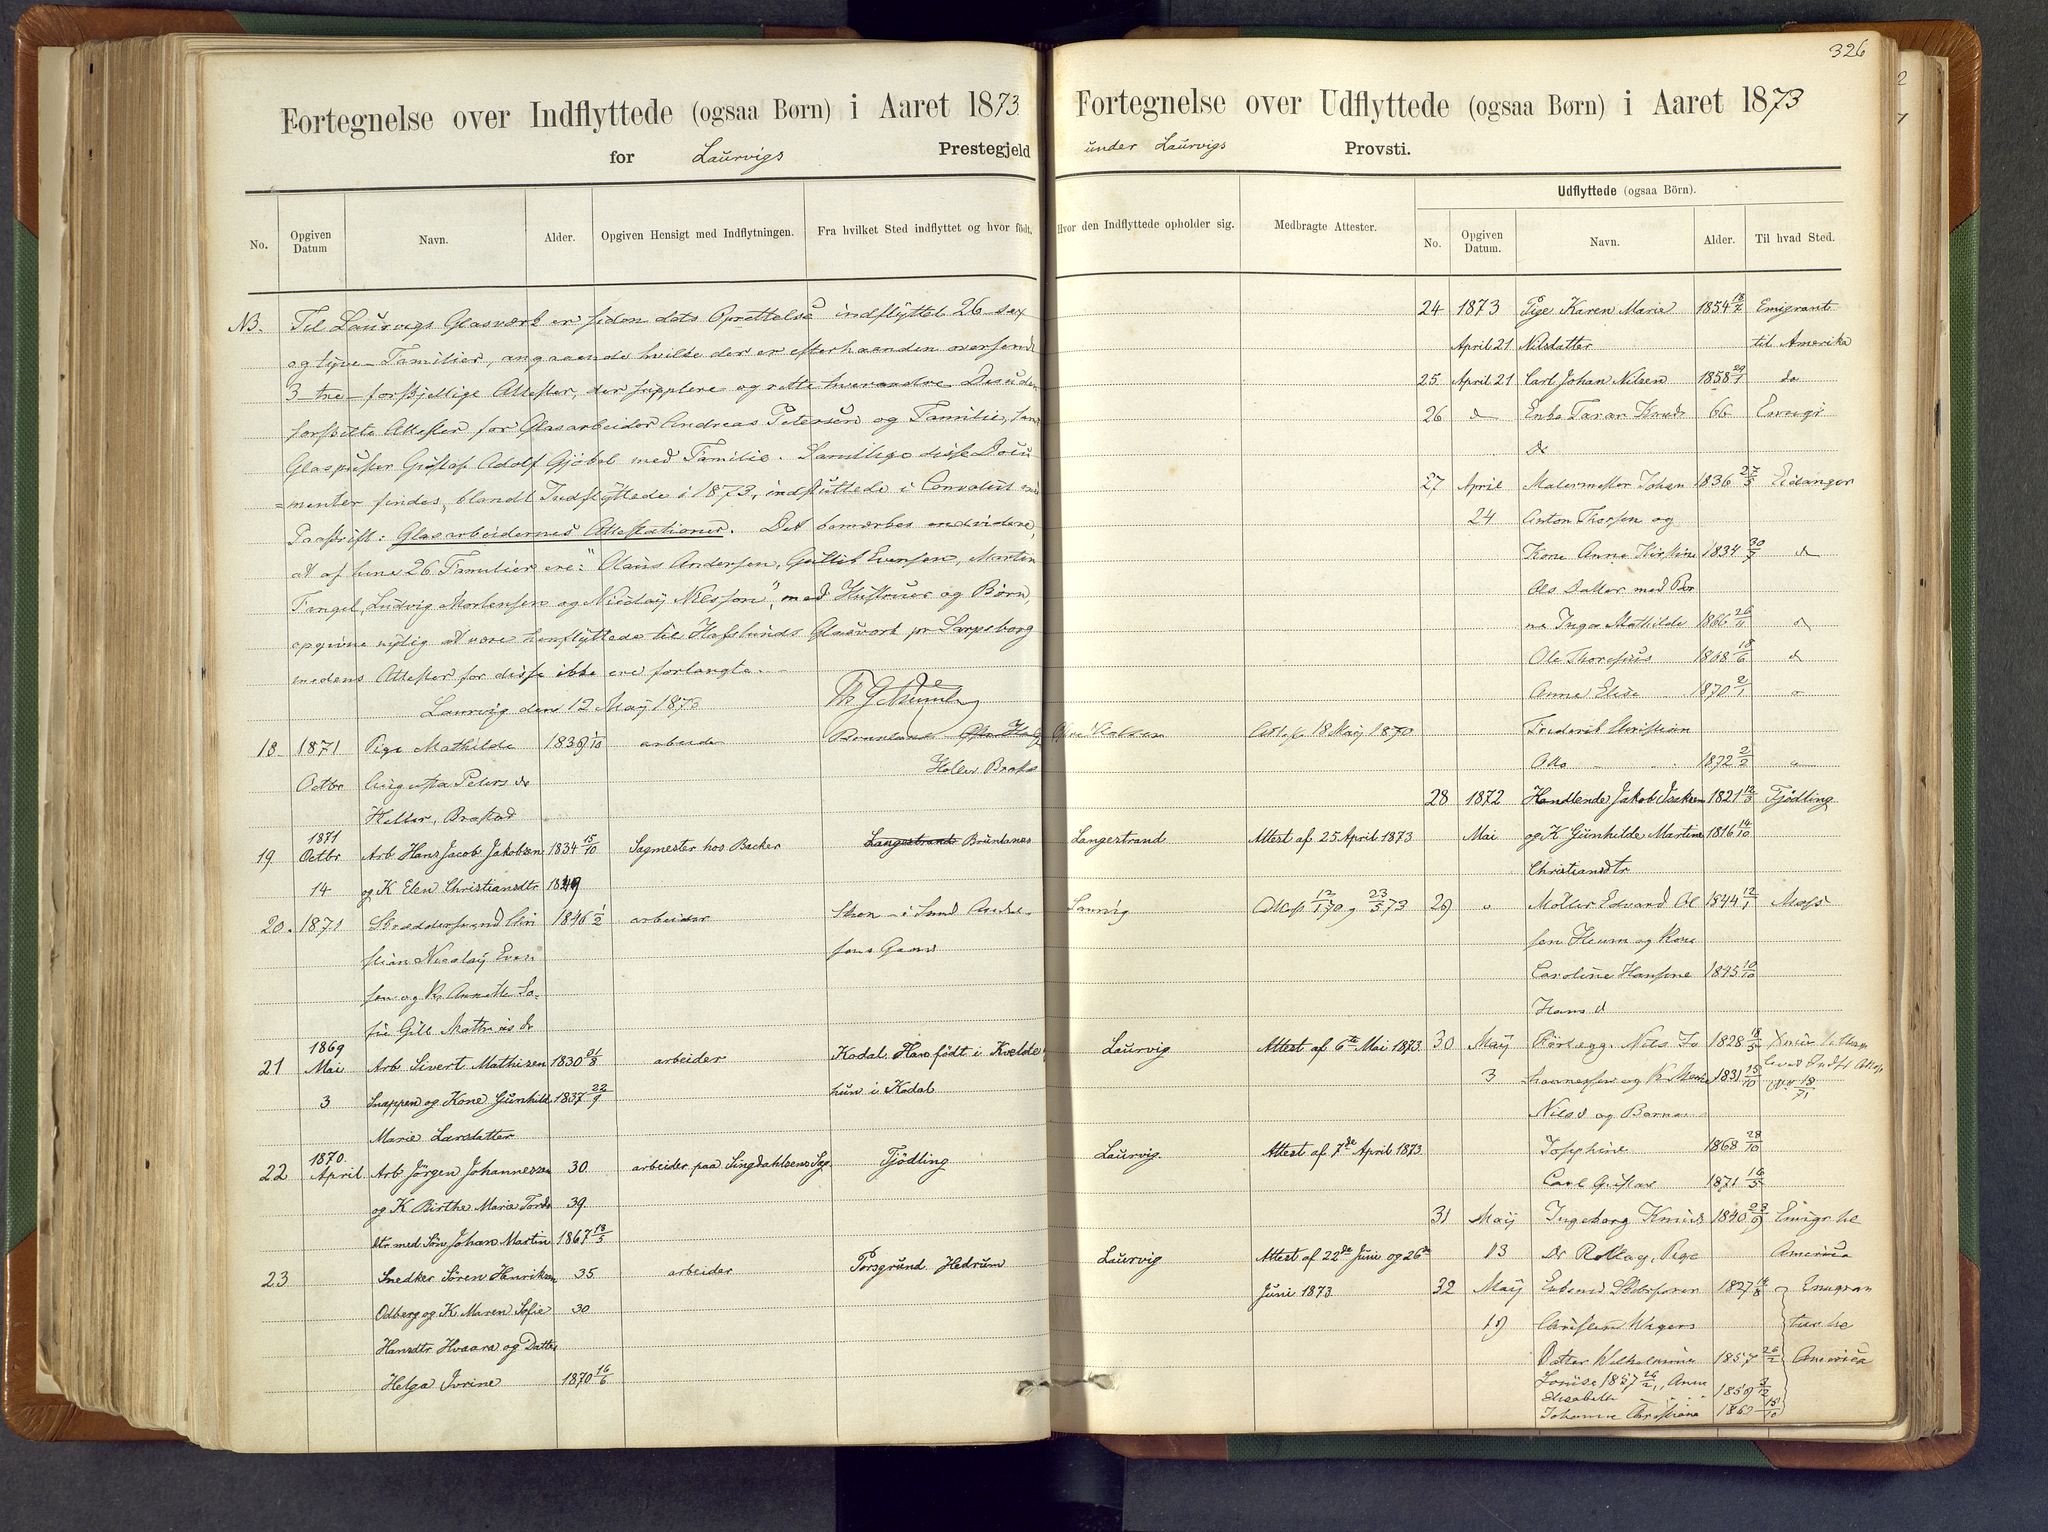 326
Fortegnelse over Indflyttede (ogsaa Børn) i Aaret 1873
for Laurvigs Prestegjeld
No.
Opgiven Datum
Navn.
Alder.
Opgiven Hensigt med Indflytningen.
Fra hvilket Sted indflyttet og hvor født.
NB. Til Laurvigs Glasværk er siden dets Oprettelse indflyttet 26 sex
og tyve Familier, angaaende hvilke der er efterhaanden oversendt
3 tre forskjellige Attester, der supplere og rette hverandre. Desuden
forskilte Attester for Glasarbeider Andreas Petersen og Familie, samt
Glaspuster Gustaf Adolf Gjøbel med Familie. Samtlige disse Docu
=menter findes, blandt Indflyttede i 1873, indsluttede i Convolut med
Paaskrift: Glasarbeidernes Attestationer. Det bemærkes endvidere,
at af hine 26 Familier ere: "Olaus Andersen, Gullik Evensen, Martin
Tangel, Ludvig Mortensen og Nicolay Nilsson", med Hustruer og Børn,
opgivne nylig at være henflyttede til Hafslunds Glasværk pr Sarpsborg
medens Attester for disse ikke ere forlangte.
Laurvig den 12 May 1873
18 1871 Pige Mathilde 1839 1/10 arbeide
Octbr Augusta Peters dr
Heller, Brastad
19 1871 Octbr Arb. Hans Jacob Jakobsen 1834 15/10 Sagmester hos Backer Langestrand Brunlanes
14 og K Elen Christiansdtr 1849
20. 1871 1846 1/2 arbeider
stian Nicolay Even
sen og K. Annette So-
fie Gill Mathias dr
21 1869 Mai Arb Sivert Mathisen 1830 21/8 arbeider Kodal. Han født i Kvelde
3 Snappen og Kone Gunhild 1837 22/9 hun i Kodal
Marie Larsdatter
22 1870. April. Arb Jörgen Johannessen 30. arbeider paa Singdahlsens Sag Tjödling
og K Birthe Marie Tords 39.
dtr med Sön Johan Martin 1867 13/5
23 Snedker Sören Henriksen 35 arbeider Porsgrund Hedrum
Odberg og K Maren Sofie 30
Hansdtr Hvaara og Datter
Helga Ivrine 1870 16/6
Fortegnelse over Udflyttede (ogsaa Børn) i Aaret 1873
under Laurvigs Provsti.
Hvor den Indflyttede opholder sig.
Medbragte Attester.
Udflyttede (ogsaa Börn).
No.
Opgiven Datum.
Navn.
Alder.
Til hvad Sted.
24 1873 Pige Karen Marie 1854 18/7 Emigrant
April 21 Nilsdatter til Amerika
25. April 21 Carl Johan Nilsen 1858 29/1 do
26 d Enke Taran Knuds 66 Emigr
Dr
27 April Malermester Johan 1836 27/5 Eidanger
24 Anton Thorsen og
Kone Anne Kirstine 1834 30/7 d
Ols Datter med Bør
ne Inga Mathilde 1866 26/11 d
Ole Thoresius 1868 18/6 d
Anne Elise 1870 2/1
Attest 18 May 1870 Frederik Christian
Otto 1872 2/2
28 1872 Handlende Jakob Isaksen 1821 12/3 Tjödling
Langestrand Attest af 25 April 1873 Mai og K Gunhilde Martine 1816 14/10
Christiansdtr
Laurvig Attest 12/1 70 og 23/5 73 29 Möller Edvard Ol 1844 12/1 Moss
sen Heum og Kone
Caroline Hansine 1845 10/10
Hans d
Laurvig Attest af 6te Mai 1873 30 May Nils Jo 1828 18/5
3 hannessen og K. Marie 1831 15/10
Nilsd og Barna
Laurvig. Attest af 7de April 1873. Josephine 1868 28/10
Carl Gustav 1871 16/5
31 May Ingeborg Knuds 1840 23/9 Emigr. til
Laurvig Attest af 22de Juni og 26de 13 Dr Rollag, Pige America
Juni 1873. 32 May 1827 14/8 Emigran
19 ter til
Datter Wilhelmine 1857 26/2 America
Louise 1857 26/2, Anne
Elisabeth 1859 3/12
Johanne Christiana 15/10